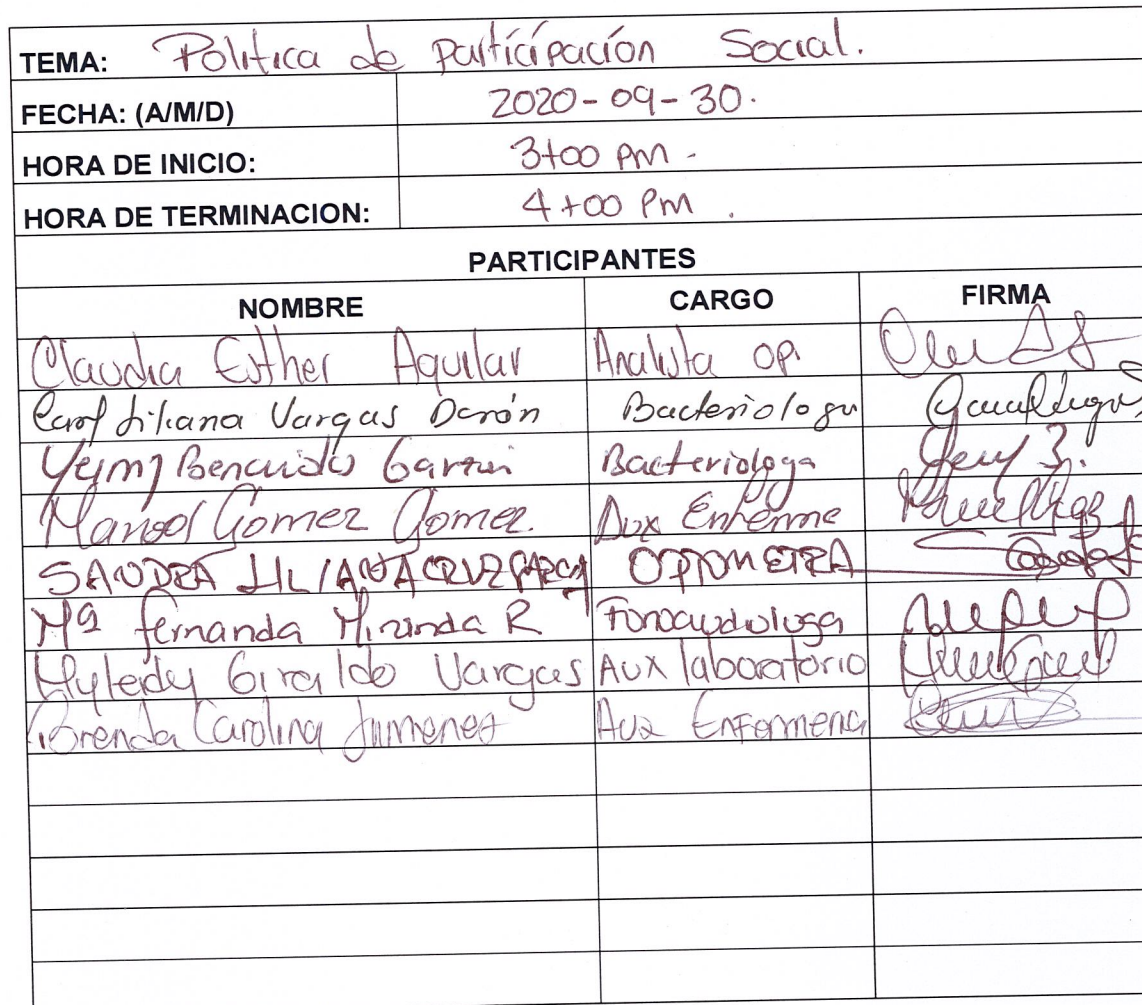 TEMA: Politica de participación Social.
FECHA: (A/M/D) 2020-09-30.
HORA DE INICIO: 3+00 pm.
HORA DE TERMINACION: 4+00 Pm.
PARTICIPANTES
NOMBRE CARGO FIRMA
Claudia Esther Aguilar Analista op.
Liliana Vargas Bacteriologa
Bacteriologa
Gomez Gomez. Aux Enferme
SANDRA LILIANA CRUZ GARCIA OPTOMETRA
Mª fernanda Miranda R Fonoaudologa
Giraldo Vargas Aux laboratorio
Brenda Carolina Jimenez Aux Enfermeria